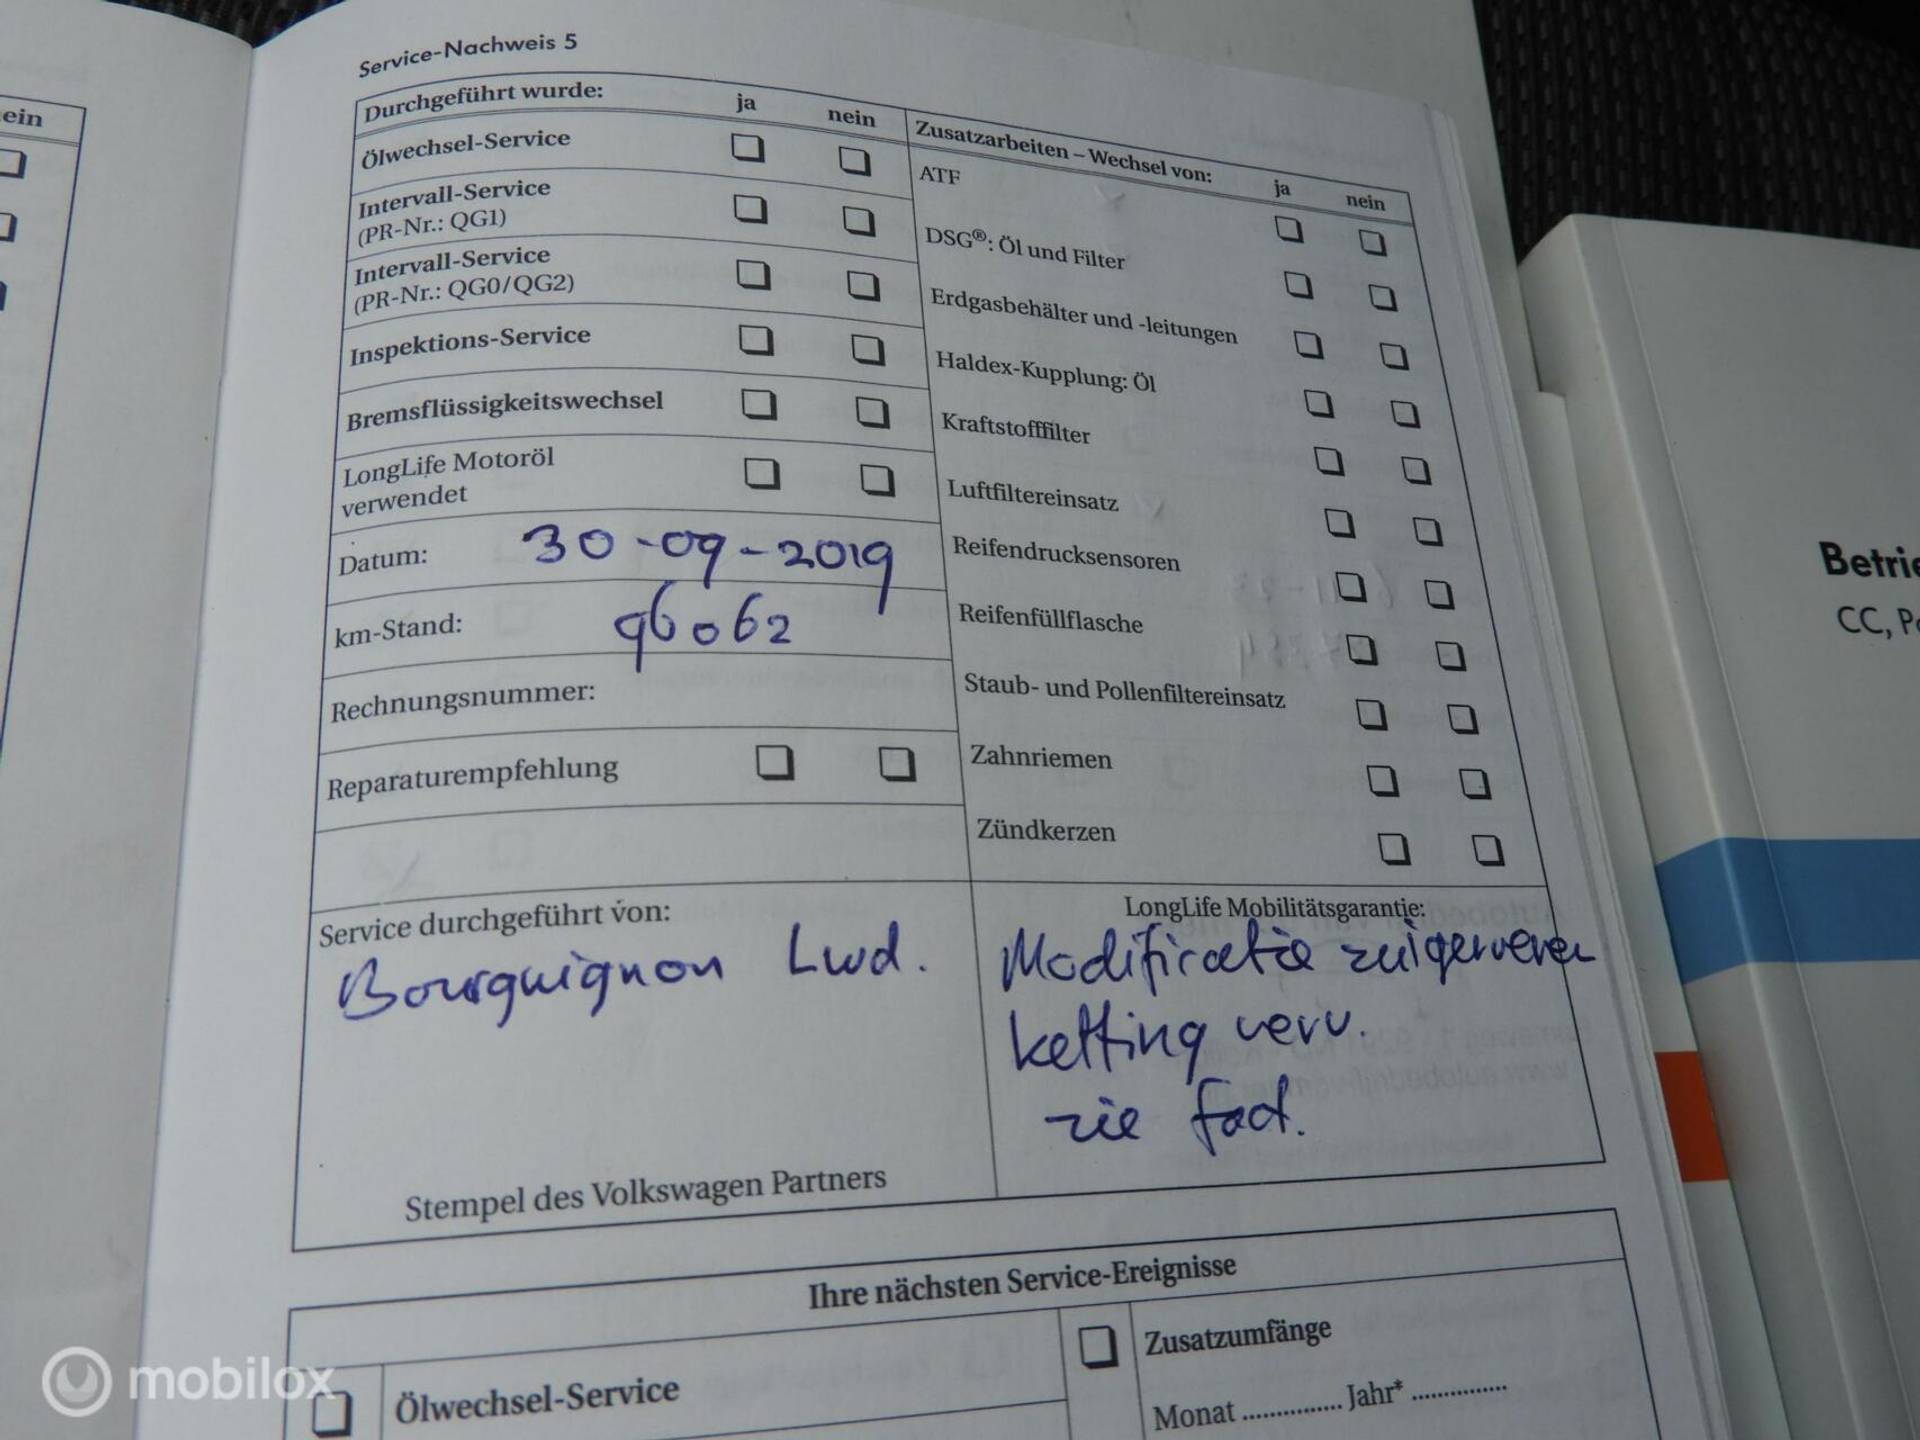 Service-Nachweis 5
ein
Durchgeführt wurde: ja nein
Ölwechsel-Service
Intervall-Service
(PR-Nr.: QG1)
Intervall-Service
(PR-Nr.: QG0/QG2)
Inspektions-Service
Bremsflüssigkeitswechsel
LongLife Motoröl
verwendet
Datum: 30-09-2019
km-Stand: 96062
Rechnungsnummer:
Reparaturempfehlung
Zusatzarbeiten – Wechsel von: ja nein
ATF
DSG®: Öl und Filter
Erdgasbehälter und -leitungen
Haldex-Kupplung: Öl
Kraftstofffilter
Luftfiltereinsatz
Reifendrucksensoren
Reifenfüllflasche
Staub- und Pollenfiltereinsatz
Zahnriemen
Zündkerzen
Service durchgeführt von:
Bourguignon Lwd.
Stempel des Volkswagen Partners
LongLife Mobilitätsgarantie:
Modificatie zuigerveren
ketting verv.
zie fact.
Ihre nächsten Service-Ereignisse
Ölwechsel-Service
Zusatzumfänge
Monat ............... Jahr* ...............
Betrie
CC, Pa
mobilox